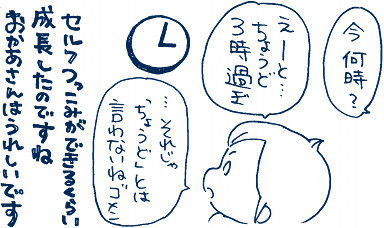 今何時?
えーと…
ちょうど
3時過ぎ
…それじゃ
「ちょうど」とは
言わないねゴメン
セルフつっこみができるくらい
成長したのですね
おかあさんはうれしいです